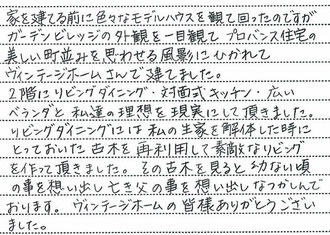 家を建てる前に色々なモデルハウスを観て回ったのですが
ガーデンビレッジの外観を一目観てプロバンス住宅の
美しい町並みを思わせる風影にひかれて
ヴィンテージホームさんで建てました。
2階にリビングダイニング・対面式キッチン・広い
ベランダと私達の理想を現実にして頂きました。
リビングダイニングには私の生家を解体した時に
とっておいた古木を再利用して素敵なリビング
を作って頂きました。その古木を見ると幼ない頃
の事を想い出し亡き父の事を想い出しなつかしんで
おります。ヴィンテージホームの皆様ありがとうござい
ました。